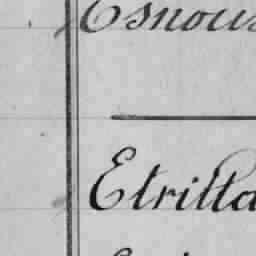 Esnous
Etritta